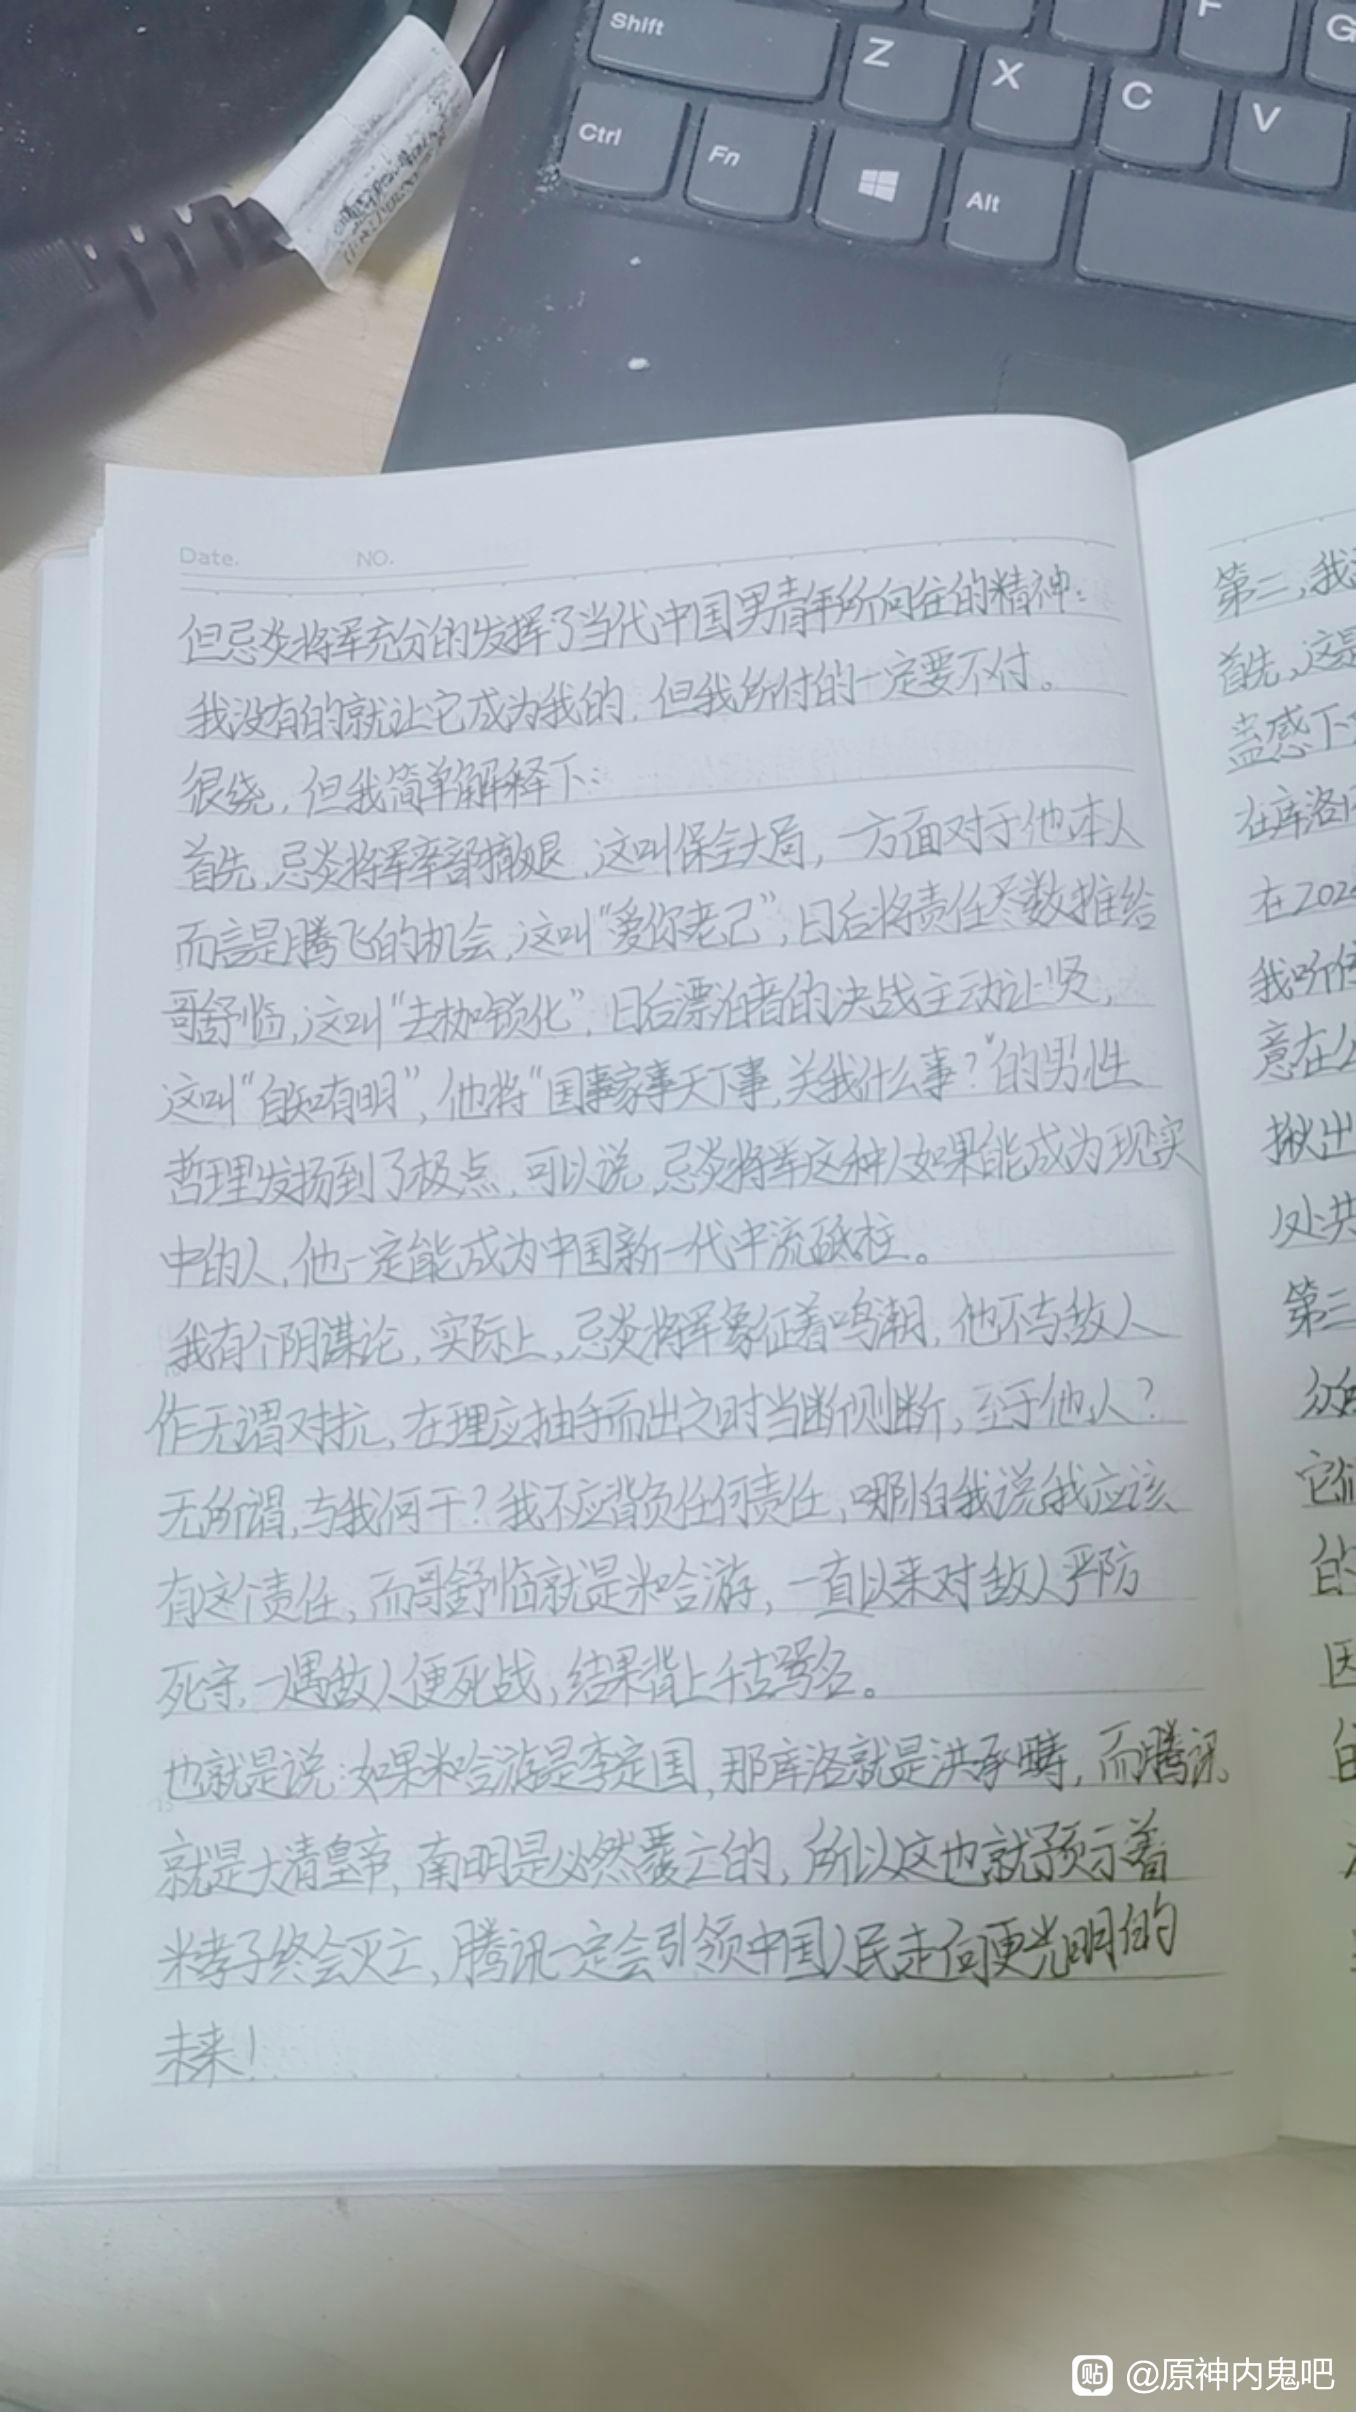 Shift
Z
X
C
V
F
G
Ctrl
Fn
Alt
Date. NO.
但忌炎将军充分的发挥了当代中国男青年所向往的精神:
我没有的就让它成为我的，但我所付的一定要不付。
很绕，但我简单解释下:
首先，忌炎将军率部撤退，这叫保全大局，一方面对于他本人
而言是腾飞的机会，这叫“爱你老己”，日后将责任尽数推给
哥舒临，这叫“去枷锁化”，日后漂泊者的决战主动让贤，
这叫“自知有明”，他将“国事家事天下事，关我什么事？”的男性
哲理发扬到了极点，可以说，忌炎将军这种人如果能成为现实
中的人，他一定能成为中国新一代中流砥柱。
我有个阴谋论，实际上，忌炎将军象征着鸣潮，他不与敌人
作无谓对抗，在理应抽手而出之时当断则断，至于他人？
无所谓，与我何干？我不应背负任何责任，哪怕我说我应该
有这个责任，而哥舒临就是米哈游，一直以来对敌人严防
死守，一遇敌人便死战，结果背上千古骂名。
也就是说：如果米哈游是李定国，那库洛就是洪承畴，而腾讯
就是大清皇帝，南明是必然覆亡的，所以这也就预示着
米孝子终会灭亡，腾讯一定会引领中国人民走向更光明的
未来！
第二，我
首先，这是
蛊惑下
在库洛
在202
我听信
意在么
揪出
人处共
第三
众
它们
的
因
@原神内鬼吧